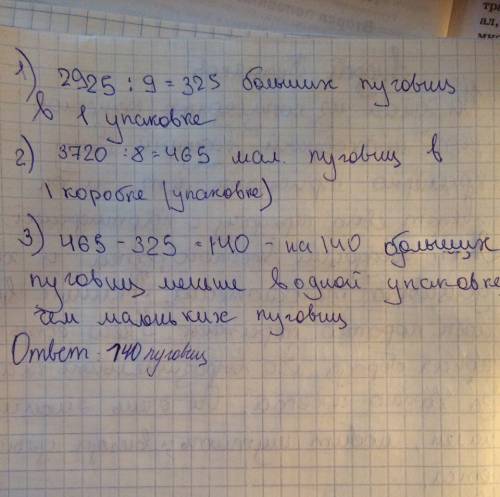 1) 2925 : 9 = 325 больших пуговиц
в 1 упаковке
2) 3720 : 8 = 465 мал. пуговиц в
1 коробке (упаковке)
3) 465 - 325 = 140 - на 140 больших
пуговиц меньше в одной упаковке
чем маленьких пуговиц
Ответ: 140 пуговиц